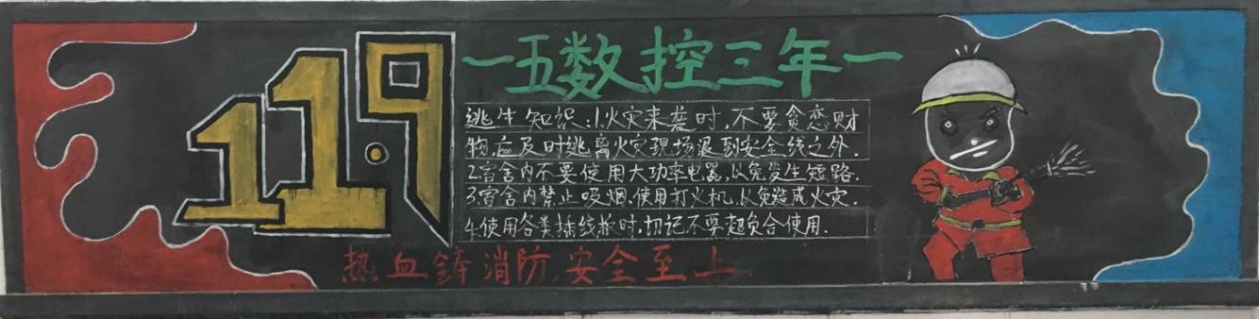 11.9
一五数控三年一
逃生知识:1.火灾来袭时,不要贪恋财
物,应及时逃离火灾现场退到安全线之外.
2.宿舍内不要使用大功率电器,以免发生短路.
3.宿舍内禁止吸烟.使用打火机,以免造成火灾.
4.使用各类插线板时,切记不要超负合使用.
热血鋳消防,安全至上